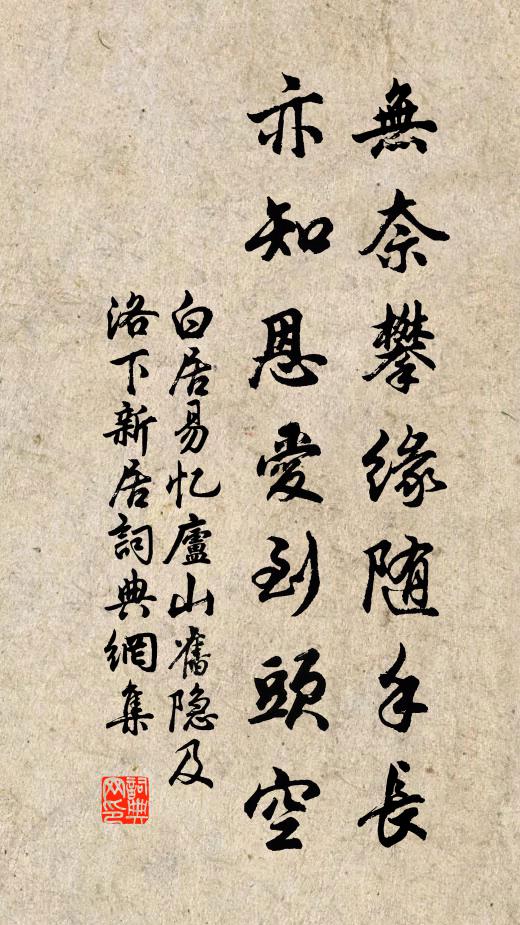 無奈攀缘随手長
亦知恩愛到頭空
白居易忆廬山舊隐及
洛下新居詞典網集
詞典网印